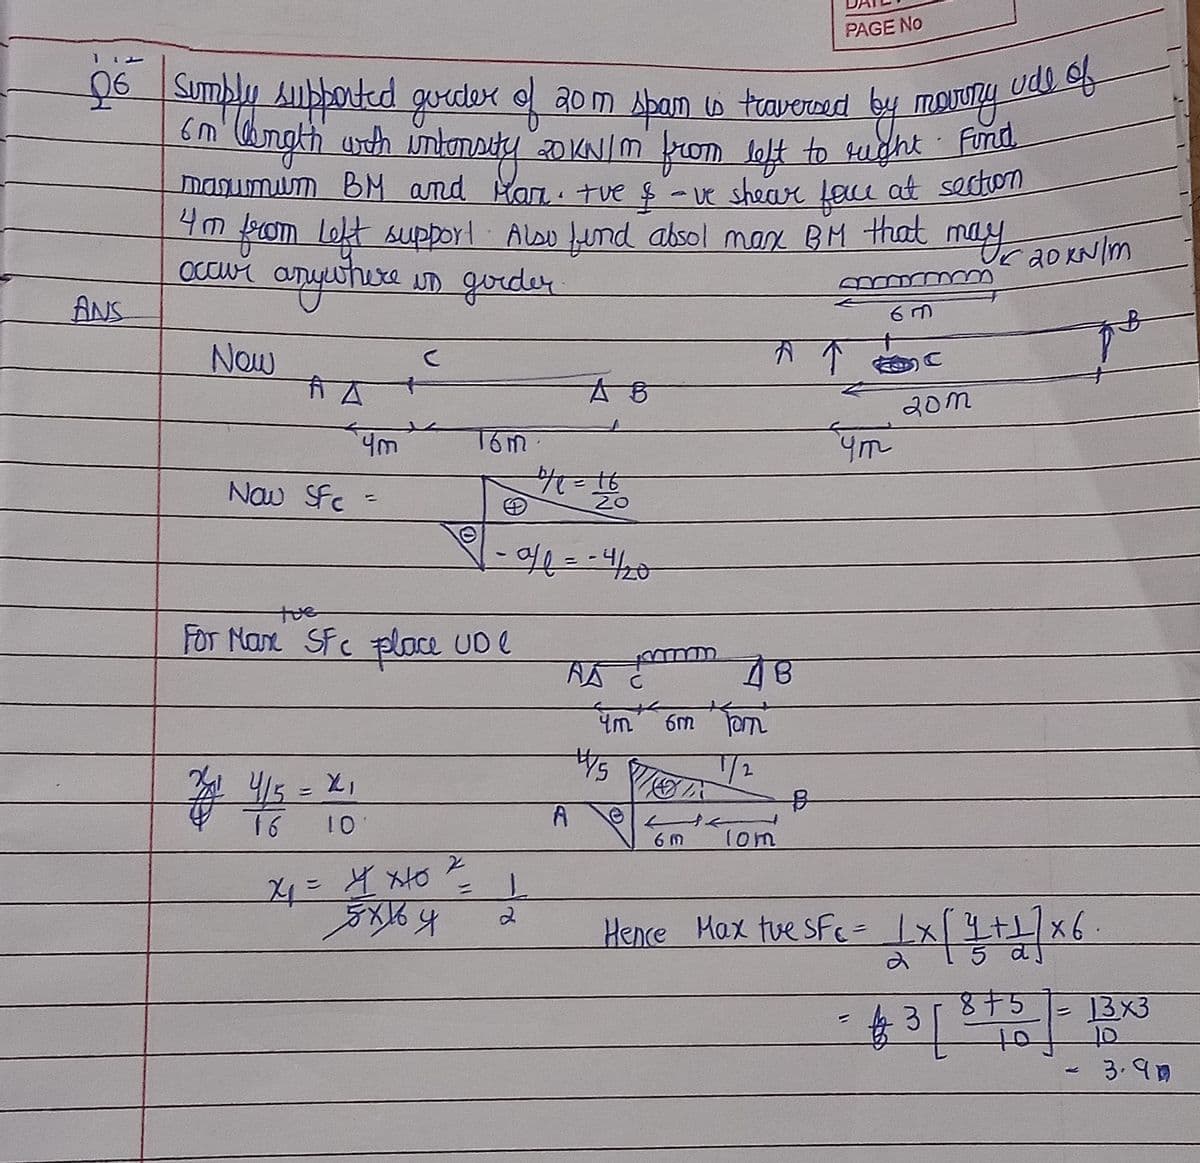 PAGE No
Q6 Simply supported girder of 20m span is traversed by moving udl of
6m length with intensity 20 KN/m from left to right. Find
maximum BM and Max. +ve & -ve shear force at section
4m from left support. Also find absol max BM that may
occur anywhere in girder.
20 KN/m
6m
ANS
Now
A C B
4m 16m
A C B
20m
4m
Now SFc =
⊕ b/l = 16/20
⊖ - a/l = -4/20
For Max +ve SFc place UDL
A C B
4m 6m 10m
4/5 ⊕ 1/2
A ⊖ B
6m 10m
4/5 / 16 = x1 / 10
x1 = 4 × 10 2 / 5×16 4 = 1/2
Hence Max +ve SFc = 1/2 × [4/5 + 1/2] × 6.
= 3 [8+5 / 10] = 13×3 / 10
= 3.9